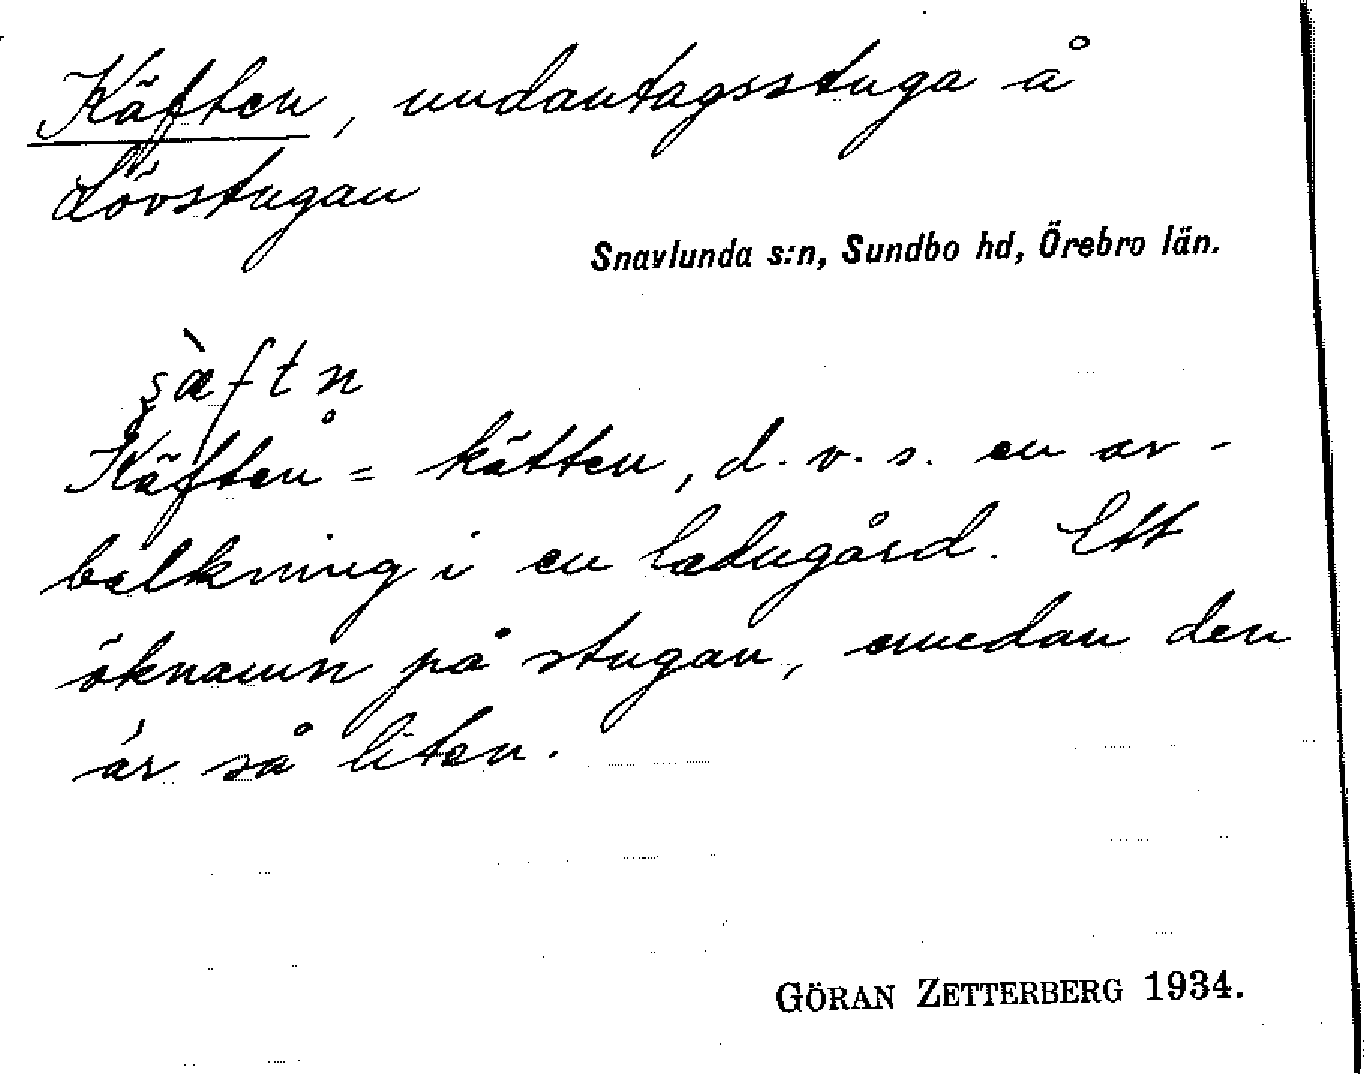 Käften, undantagsstuga å
Lövstugan
Snavlunda s:n, Sundbo hd, Örebro län.
Käften = kätten, d. v. s. en av-
balkning i en ladugård. Ett
öknamn på stugan, emedan den
är så liten.
GÖRAN ZETTERBERG 1934.